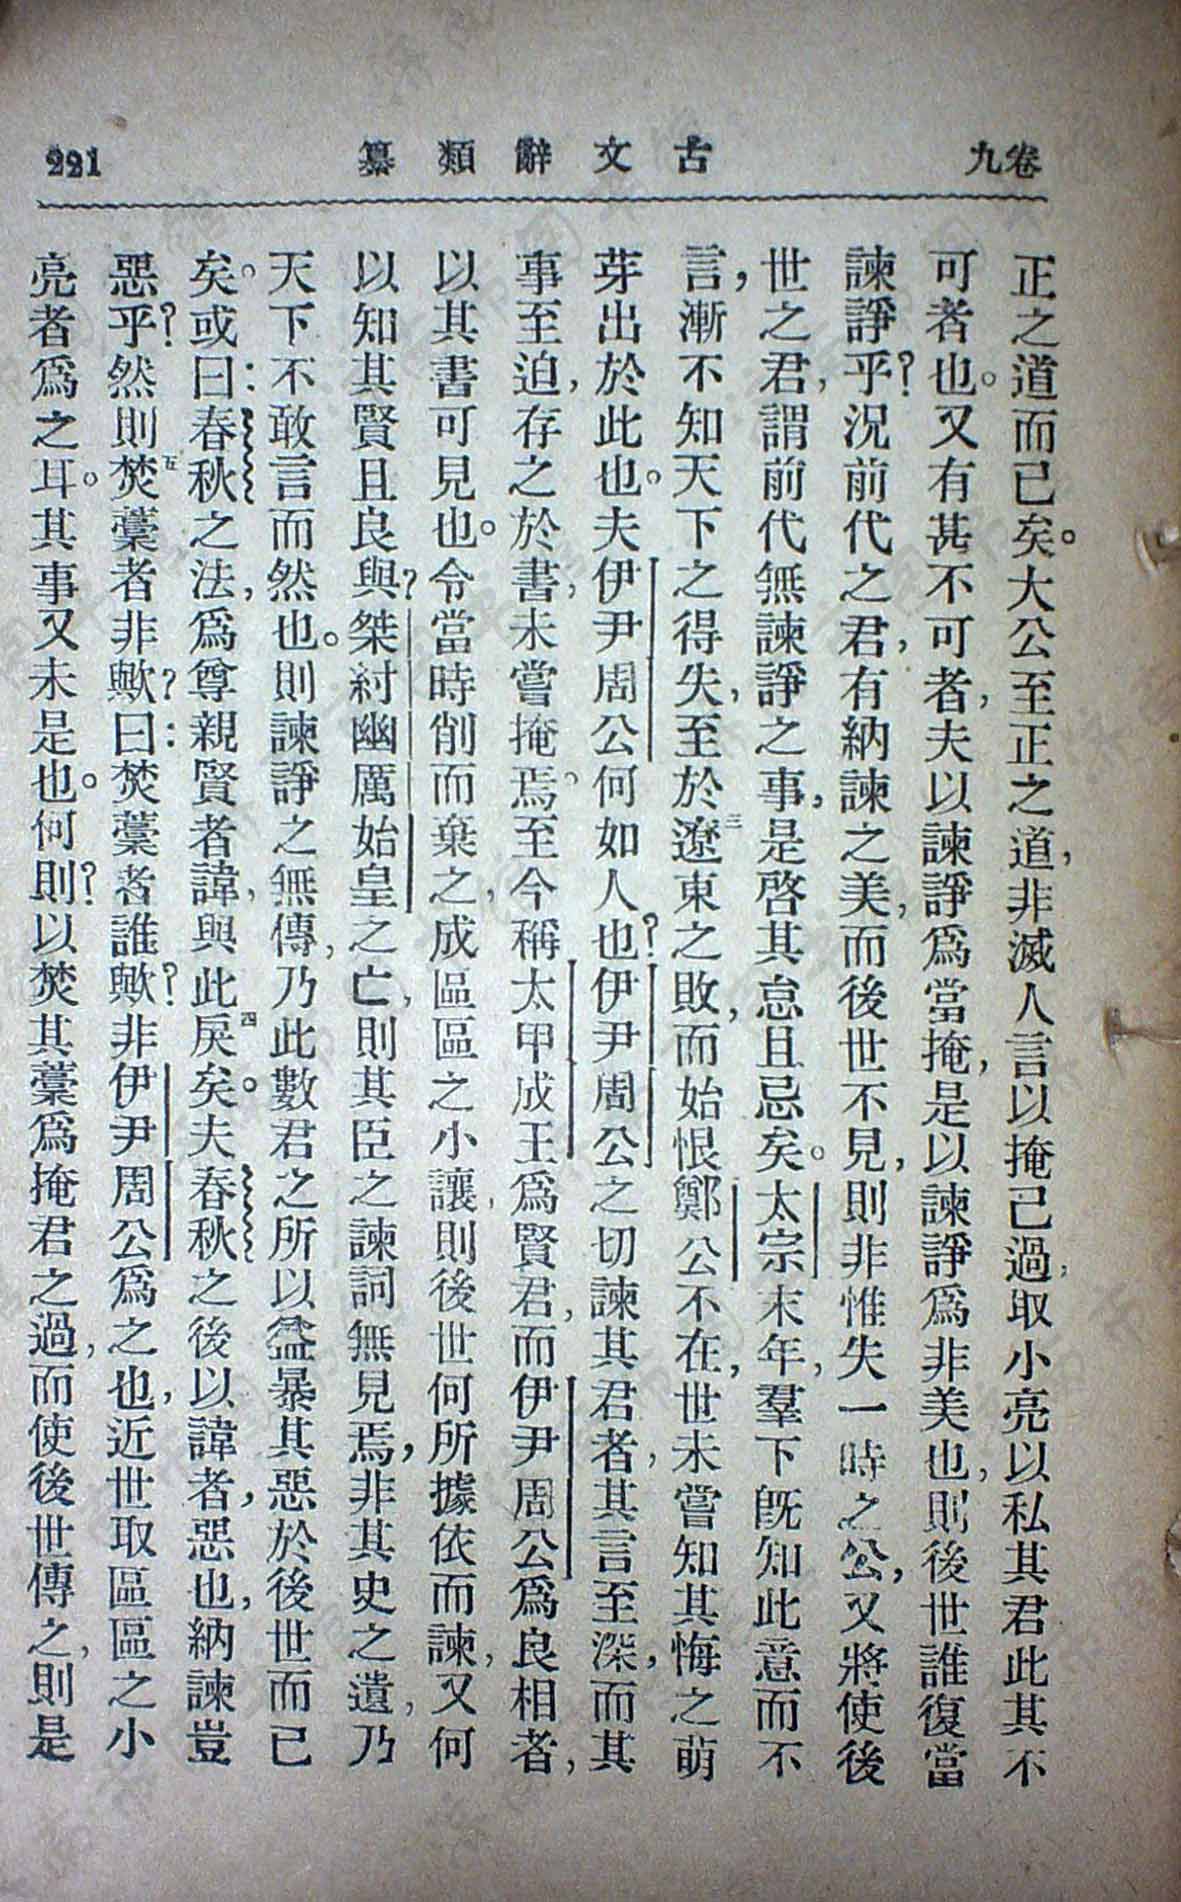 卷九
古文辭類纂
221
正之道而已矣。大公至正之道,非滅人言以掩己過,取小亮以私其君此其不
可者也。又有甚不可者,夫以諫諍爲當掩,是以諫諍爲非美也,則後世誰復當
諫諍乎?況前代之君,有納諫之美,而後世不見,則非惟失一時之公,又將使後
世之君,謂前代無諫諍之事,是啓其怠且忌矣。太宗末年,羣下旣知此意而不
言,漸不知天下之得失,至於遼三東之敗,而始恨鄭公不在,世未嘗知其悔之萌
芽出於此也。夫伊尹周公何如人也?伊尹周公之切諫其君者,其言至深,而其
事至迫,存之於書,未嘗掩焉。至今稱太甲成王爲賢君,而伊尹周公爲良相者,
以其書可見也。令當時削而棄之,成區區之小讓,則後世何所據依而諫,又何
以知其賢且良與?桀紂幽厲始皇之亡,則其臣之諫詞無見焉,非其史之遺,乃
天下不敢言而然也。則諫諍之無傳,乃此數君之所以益暴其惡於後世而已
矣。或曰:春秋之法,爲尊親賢者諱,與此戾四矣。夫春秋之後以諱者,惡也,納諫豈
惡乎?然則焚五藁者非歟?曰:焚藁者誰歟?非伊尹周公爲之也,近世取區區之小
亮者爲之耳。其事又未是也。何則?以焚其藁爲掩君之過,而使後世傳之,則是